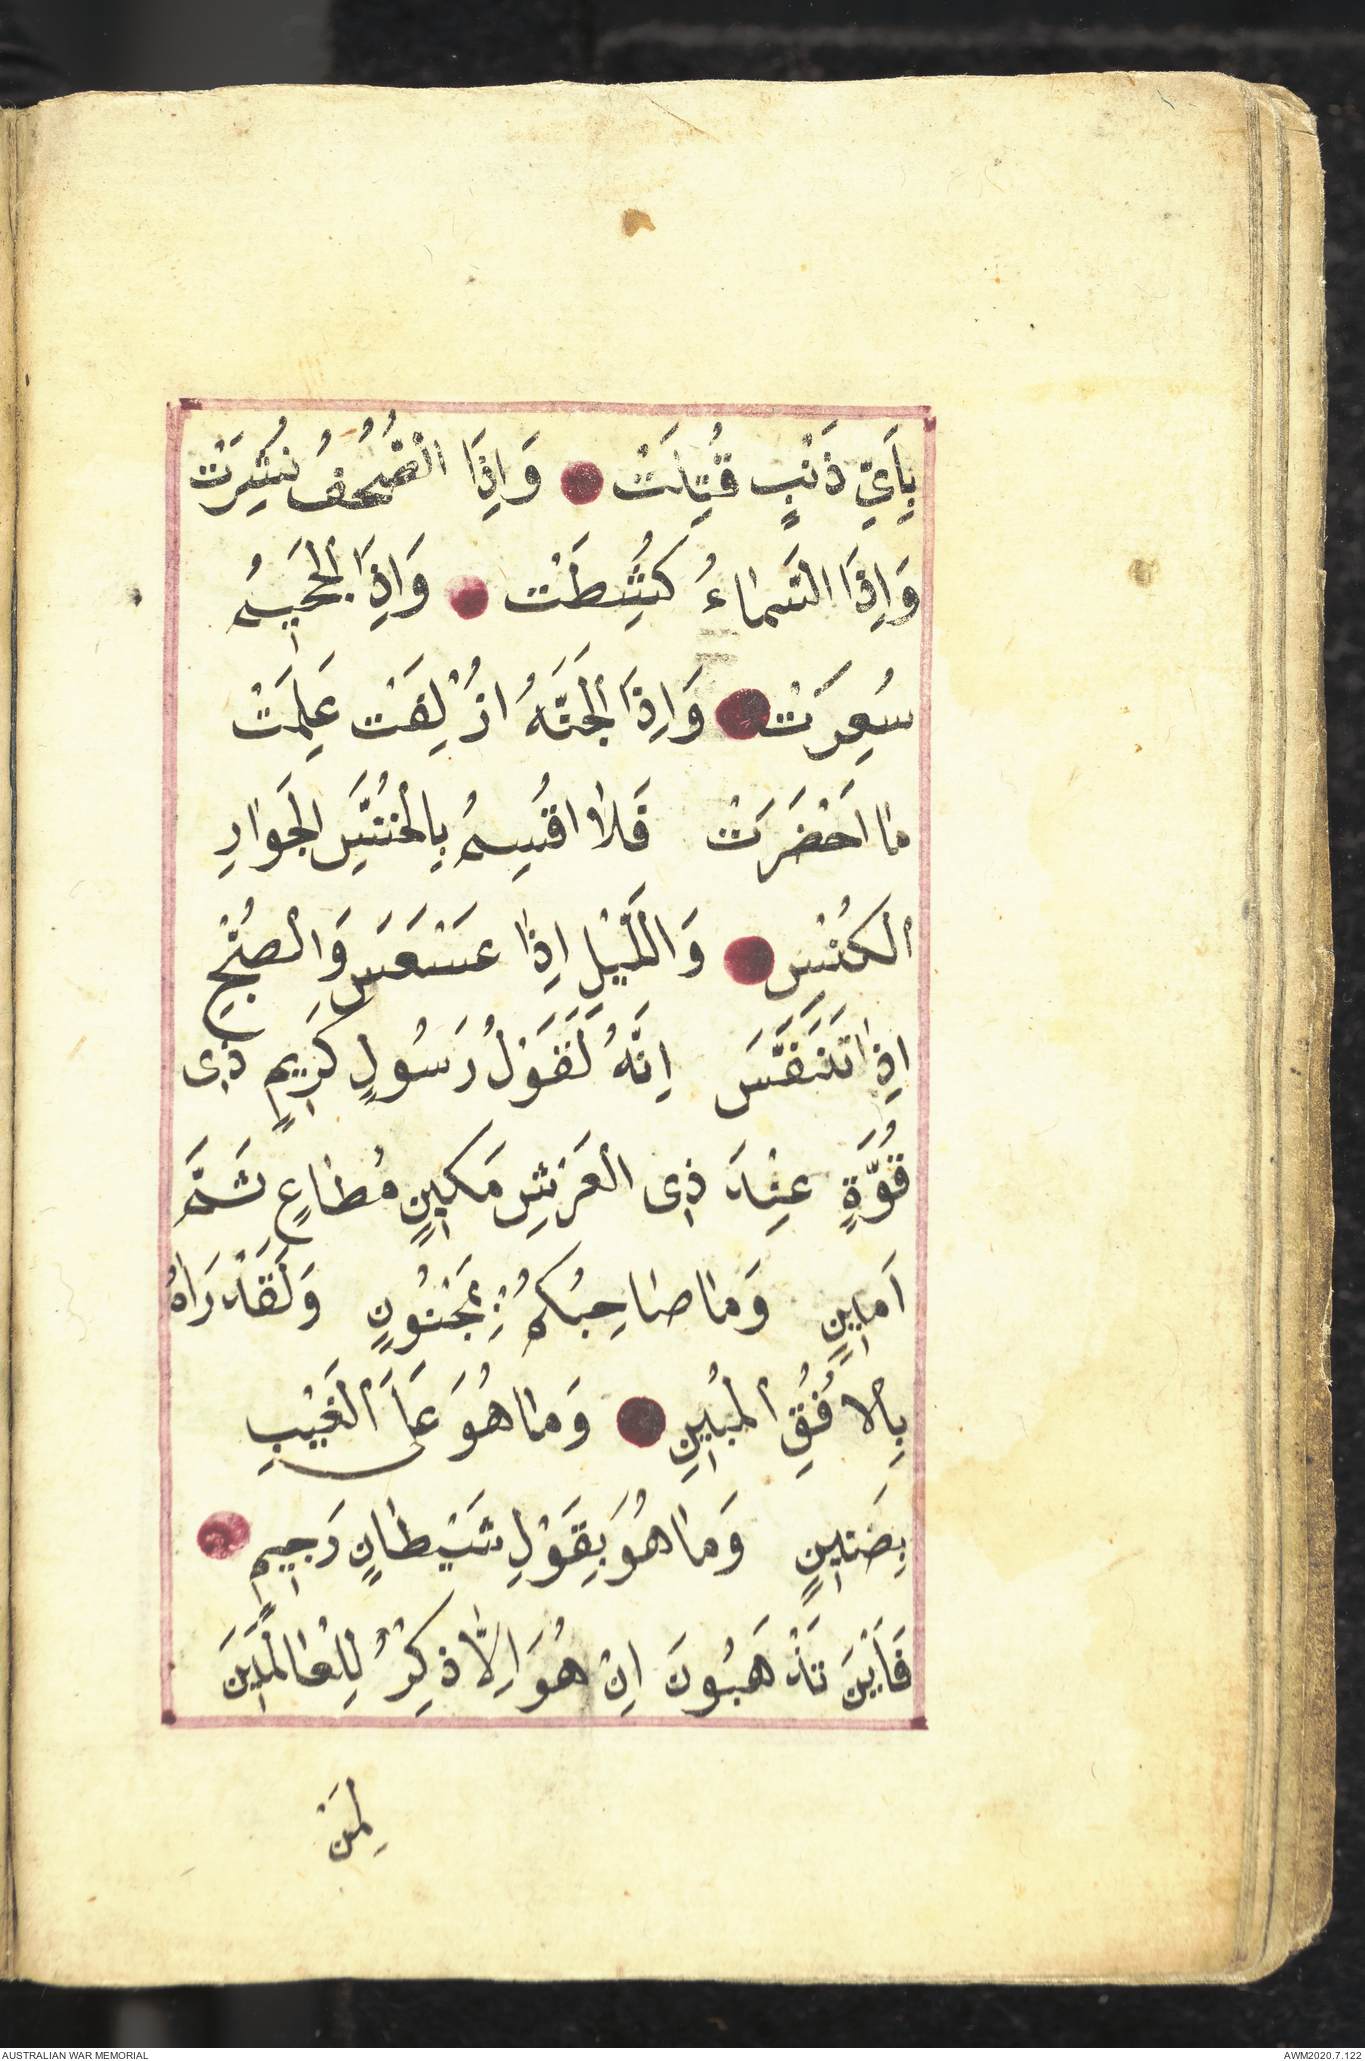 بِاَىِّ ذَنْبٍ قُتِلَتْ وَاِذَا الصُّحُفُ نُشِرَتْ
وَاِذَا السَّمَاءُ كُشِطَتْ وَاِذَا الْجَحِيمُ
سُعِرَتْ وَاِذَا الْجَنَّةُ اُزْلِفَتْ عَلِمَتْ
مَا اَحْضَرَتْ فَلَا اُقْسِمُ بِالْخُنَّسِ الْجَوَارِ
الْكُنَّسِ وَاللَّيْلِ اِذَا عَسْعَسَ وَالصُّبْحِ
اِذَا تَنَفَّسَ اِنَّهُ لَقَوْلُ رَسُولٍ كَرِيمٍ ذِى
قُوَّةٍ عِنْدَ ذِى الْعَرْشِ مَكِينٍ مُطَاعٍ ثَمَّ
اَمِينٍ وَمَا صَاحِبُكُمْ بِمَجْنُونٍ وَلَقَدْ رَاٰهُ
بِالْاُفُقِ الْمُبِينِ وَمَا هُوَ عَلَى الْغَيْبِ
بِضَنِينٍ وَمَا هُوَ بِقَوْلِ شَيْطَانٍ رَجِيمٍ
فَاَيْنَ تَذْهَبُونَ اِنْ هُوَ اِلَّا ذِكْرٌ لِلْعَالَمِينَ
لِمَنْ
AUSTRALIAN WAR MEMORIAL
AWM2020.7.122